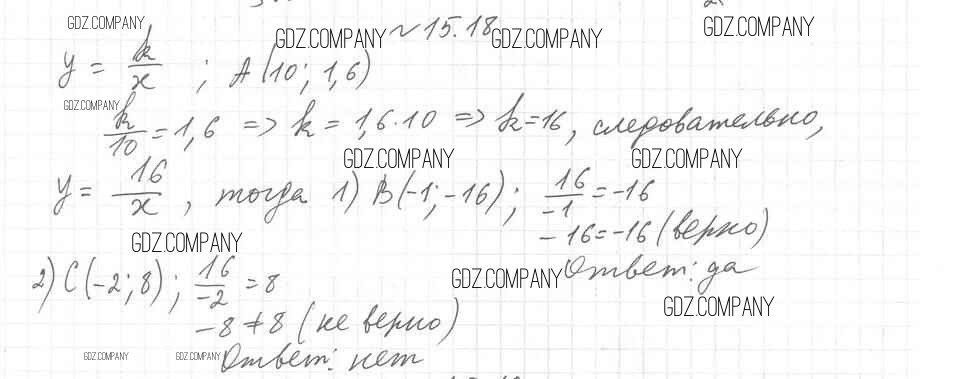 GDZ.COMPANY GDZ.COMPANY № 15.18 GDZ.COMPANY GDZ.COMPANY
y = k/x ; A(10; 1,6)
GDZ.COMPANY
k/10 = 1,6 => k = 1,6·10 => k=16, следовательно,
GDZ.COMPANY GDZ.COMPANY
y = 16/x, тогда 1) B(-1; -16); 16/-1 = -16
-16=-16 (верно)
GDZ.COMPANY
Ответ: да
2) C(-2; 8); 16/-2 = 8
GDZ.COMPANY
GDZ.COMPANY
-8≠8 (не верно)
GDZ.COMPANY GDZ.COMPANY Ответ: нет